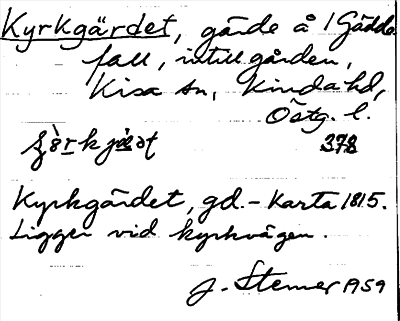 Kyrkgärdet, gärde å 1 Gädde
fall, intill gården,
Kisa sn, Kinda hd,
Östg. l.
378
Kyrkgärdet, gd. - Karta 1815.
Ligger vid kyrkvägen.
J. Stemer 1959